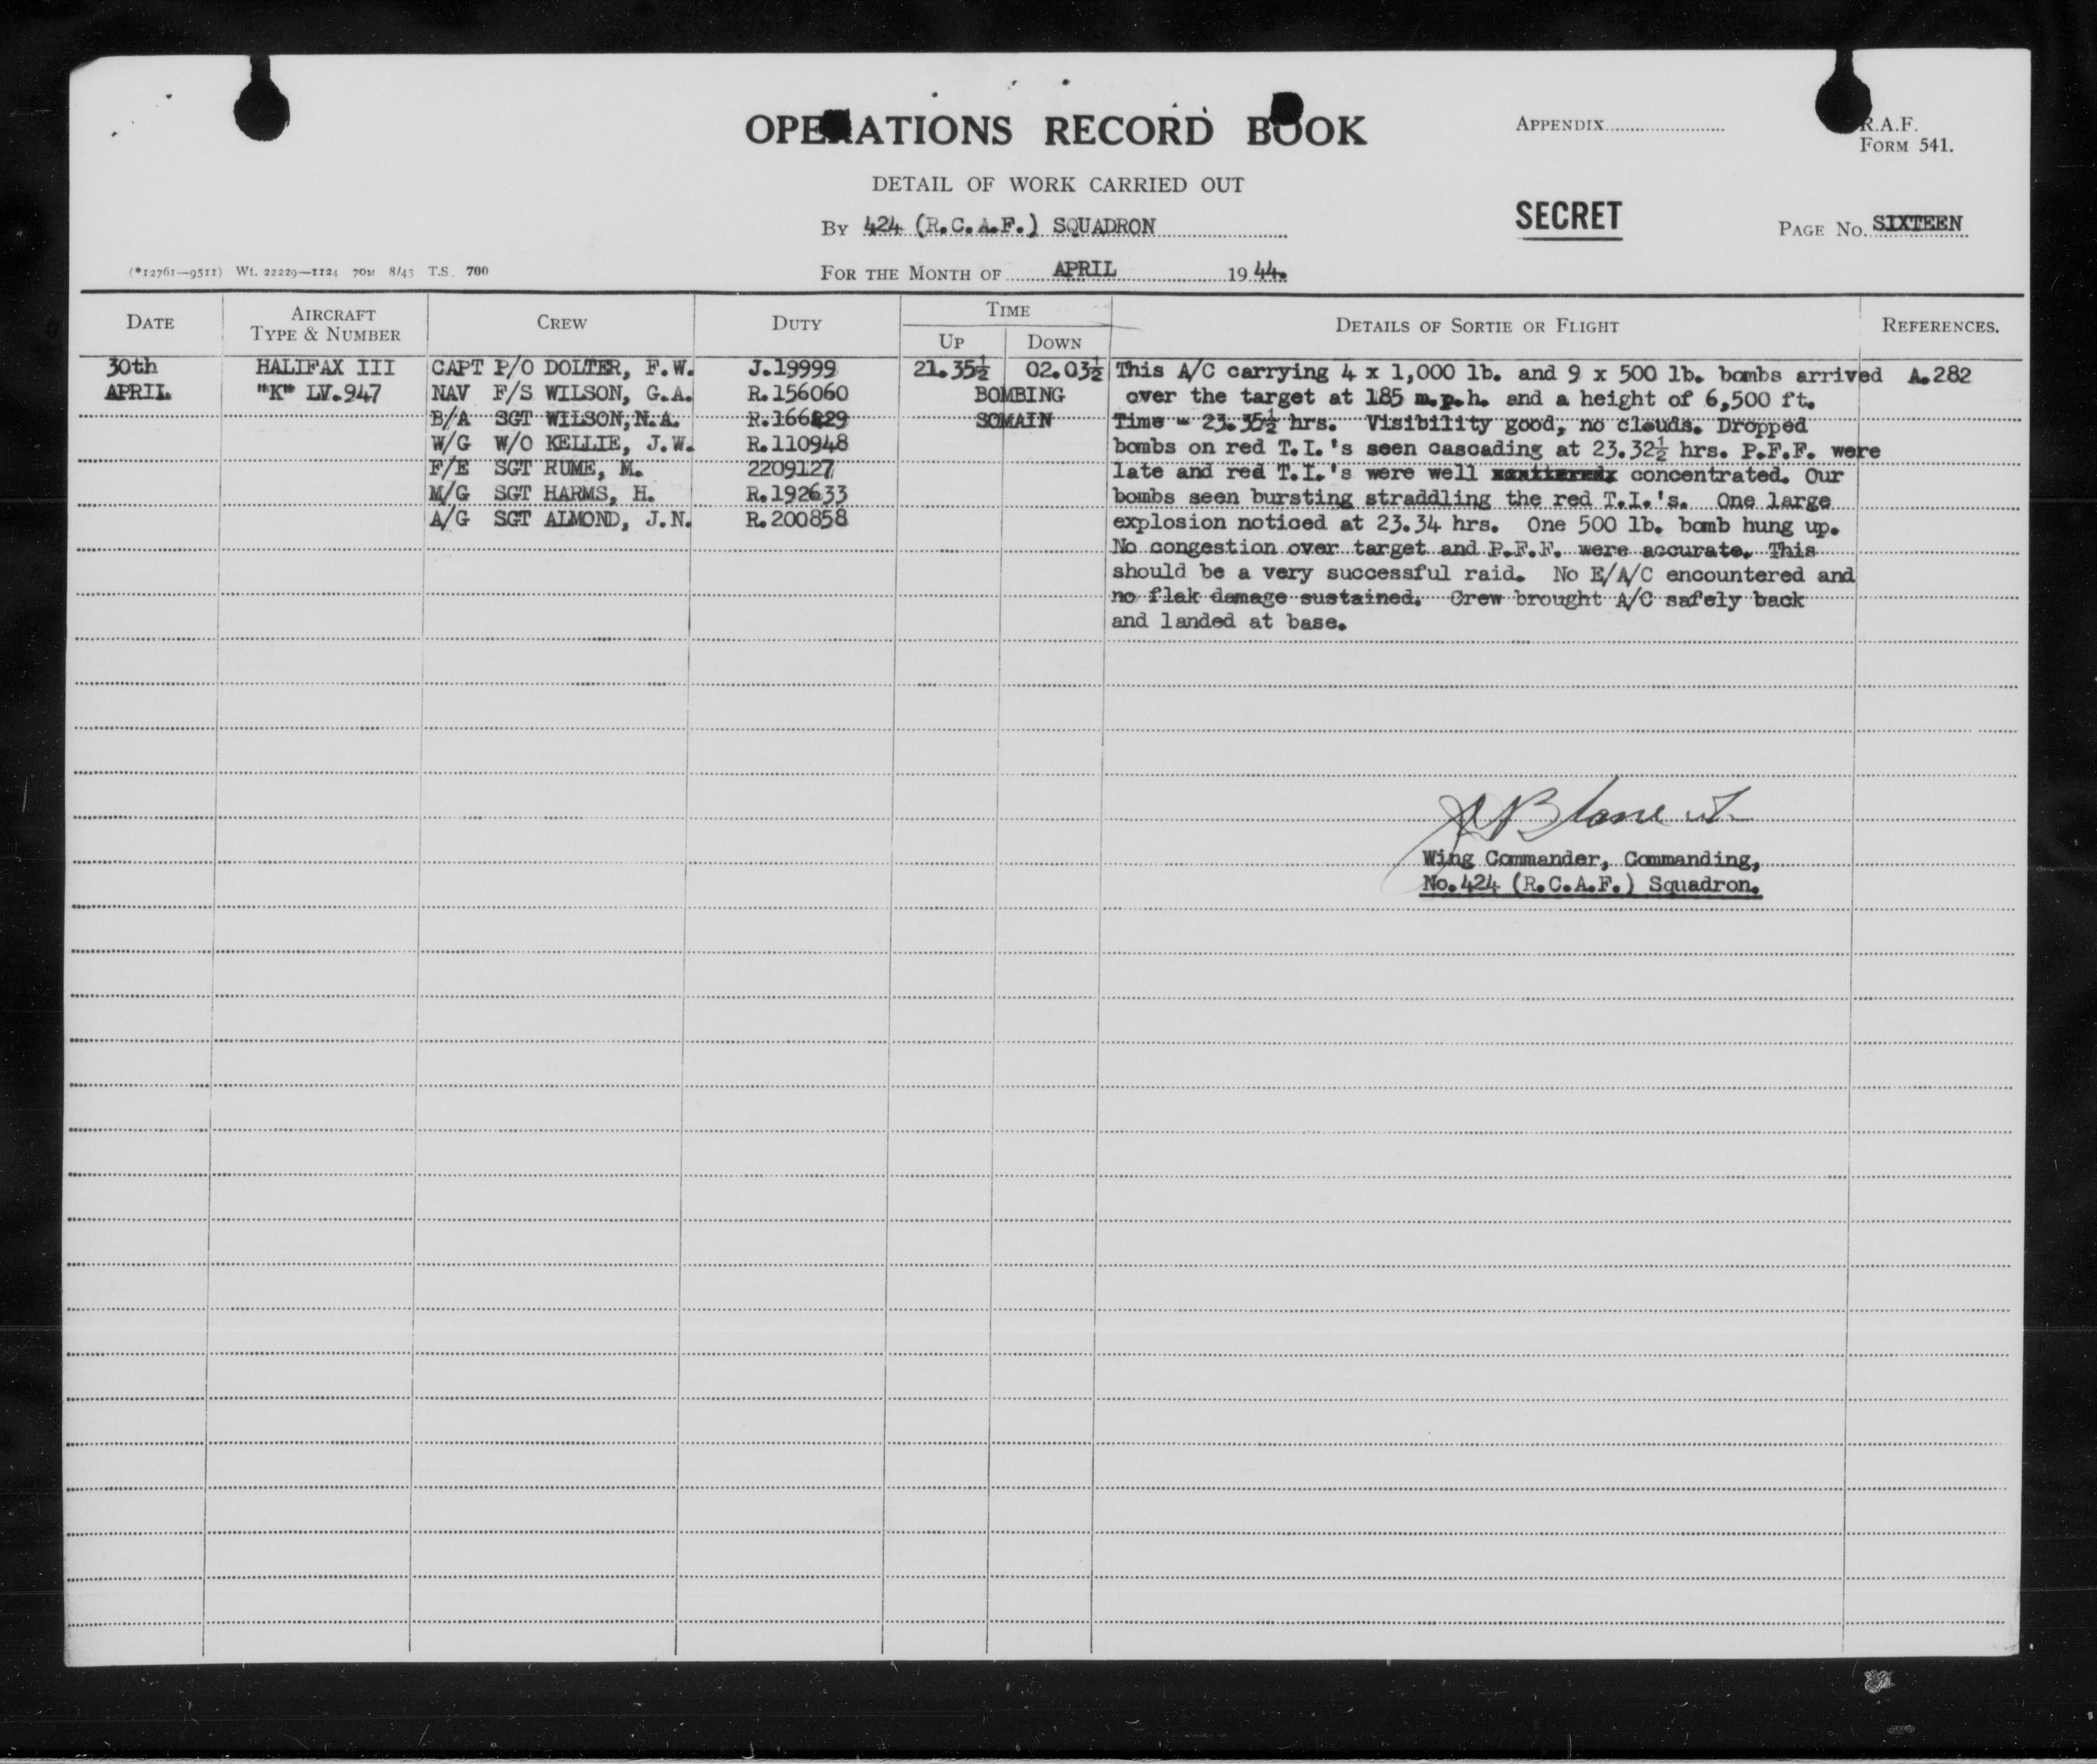 OPERATIONS RECORD BOOK
APPENDIX
R.A.F.
FORM 541.
DETAIL OF WORK CARRIED OUT
By 424 (R.C.A.F.) SQUADRON
SECRET
PAGE No. SIXTEEN
(*12761—9511) Wt. 22229—1124 70M 8/43 T.S. 700
FOR THE MONTH OF APRIL 1944.
DATE AIRCRAFT TYPE & NUMBER CREW DUTY TIME UP DOWN DETAILS OF SORTIE OR FLIGHT REFERENCES.
30th HALIFAX III CAPT P/O DOLTER, F.W. J.19999 21.35½ 02.03½ This A/C carrying 4 x 1,000 lb. and 9 x 500 lb. bombs arrived A.282
APRIL "K" LV.947 NAV F/S WILSON, G.A. R.156060 BOMBING over the target at 185 m.p.h. and a height of 6,500 ft.
B/A SGT WILSON, N.A. SOMAIN Time - 23.35½ hrs. Visibility good, no clouds. Dropped
W/G W/O KELLIE, J.W. R.110948 bombs on red T.I.'s seen cascading at 23.32½ hrs. P.F.F. were
F/E SGT RUME, M. 2209127 late and red T.I.'s were well concentrated. Our
M/G SGT HARMS, H. R.192633 bombs seen bursting straddling the red T.I.'s. One large
A/G SGT ALMOND, J.N. R.200858 explosion noticed at 23.34 hrs. One 500 lb. bomb hung up.
No congestion over target and P.F.F. were accurate. This
should be a very successful raid. No E/A/C encountered and
no flak damage sustained. Crew brought A/C safely back
and landed at base.
Wing Commander, Commanding,
No.424 (R.C.A.F.) Squadron.